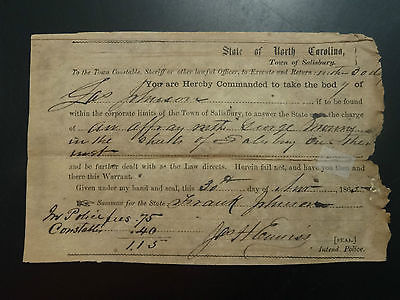 State of North Carolina,
Town of Salisbury.
To the Town Constable, Sheriff or other lawful Officer, to Execute and Return
You are Hereby Commanded to take the body of
Jas Johnson if to be found
within the corporate limits of the Town of Salisbury, to answer the State upon the charge
of an affray with George
in the Streets of Salisbury on the
inst
and be further dealt with as the Law directs. Herein fail not, and have you then and
there this Warrant.
Given under my hand and seal, this 30th day of 186
Summon for the State Frank Johnson
Int Police fees .75
Constable .40
1.15
Jas H Enniss [SEAL.]
Intend. Police.